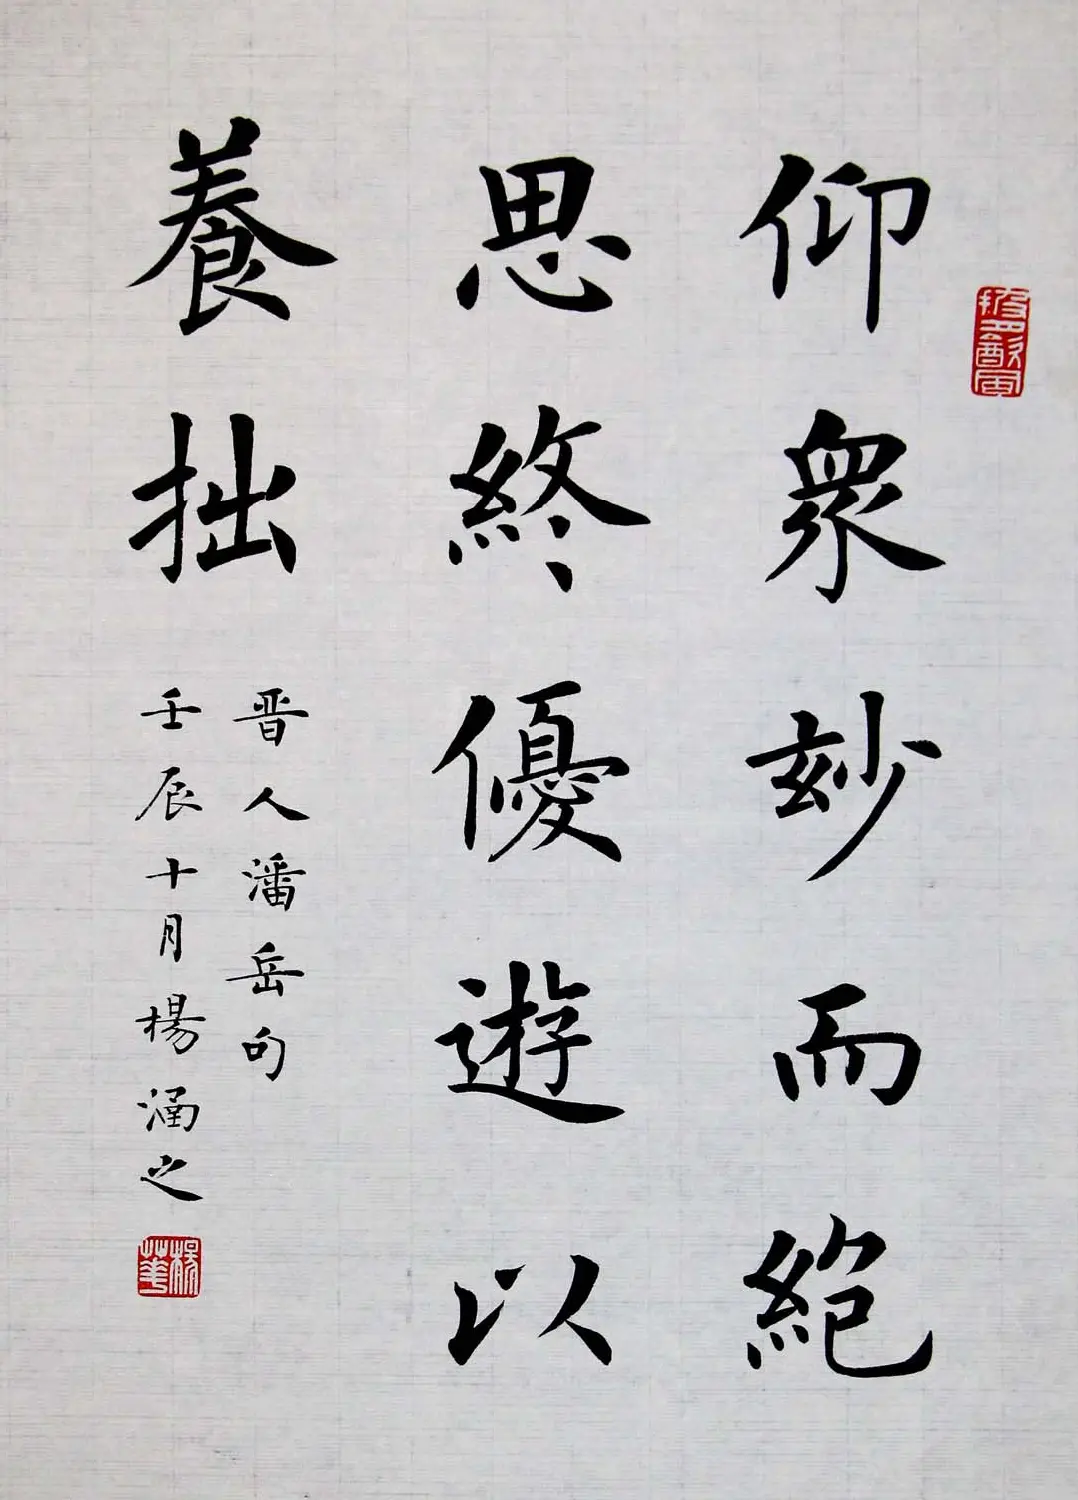 仰衆玅而絕
思終優遊以
養拙
晋人潘岳句
壬辰十月楊涵之